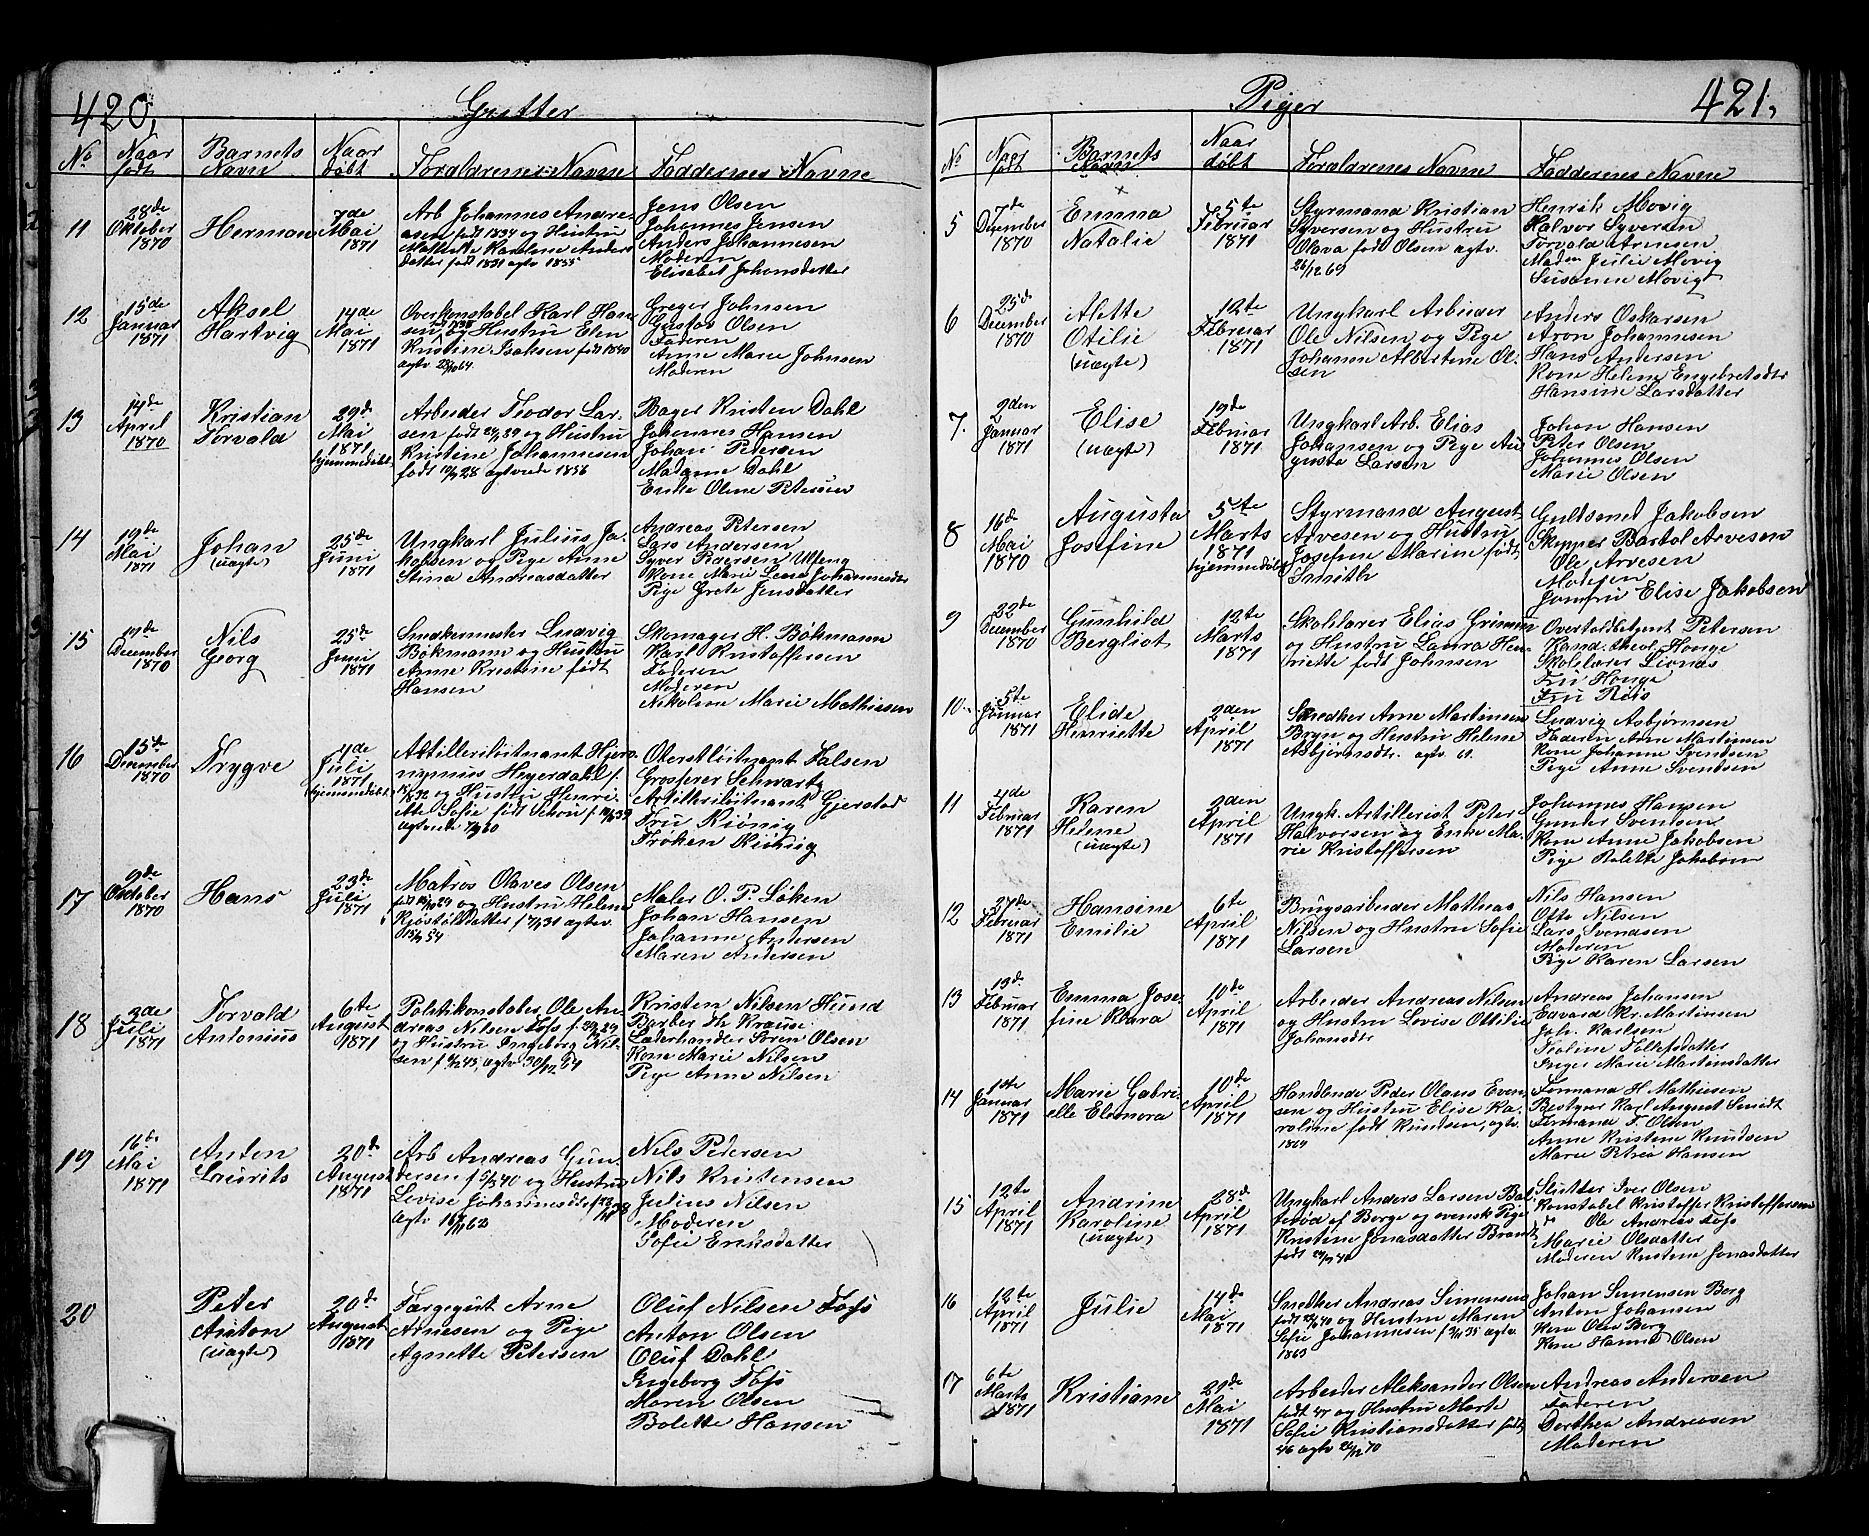 420,
Gutter
No
Naar født
Barnets Navn
Naar døbt
Forældrenes Navne
Faddernes Navne
11
28de
Oktober
1870
Herman
7de
Mai
1871
Arb Johannes Andre-
asen født 1834 og Hustru
Karoline Anders
datter født 1831 agtv 1855
Jens Olsen
Johannes Jensen
Anders Johannesen
Moderen
Elisabet Johansdatter
12
15de
Januar
1871
Aksel
Hartvig
14de
Mai
1871
Overkonstabel Karl Han-
sen og Hustru Elen
Kristine Isaksen født 1840
agtv 64.
Greger Johnsen
Gustav Olsen
Faderen
Anne Marie Johnsen
Moderen
13
14de
April
1870
Kristian
Torvald
29de
Mai
1871
hjemmedøbt
Arbeider Teodor Lar-
sen født 39 og Hustru
Kristine Johannesen
født 28 agtviede 1856
Bager Kristen Dahl
Johannes Hansen
Johan Petersen
Madame Dahl
Enke Oline Petersen
14
19de
Mai
1871
Johan
(uægte)
25de
Juni
1871
Ungkarl Julius Ja-
kobsen og Pige Anne
Stina Andreasdatter
Andreas Petersen
Lars Andersen
Syver Pedersen
Kone Marie Lena Johannesdtr
Pige Grete Jensdatter
15
December
1870
Nils
Georg
25de
Juni
1871
Snedkermester Ludvig
Bökmann og Hustru
Anne Kristine født
Hansen
Skomager H. Bökmann
Karl Kristoffersen
Faderen
Moderen
Nikoline Marie Mathisen
16
15de
December
1870
Trygve
4de
Juli
1871
(hjemmedøbt
Artilleriløitnant Hjero-
nymus Heyerdahl f.
1832 og Hustru Henri-
ette Sofie født f 39
agtviede 60
Oberstløitnant Falsen
Grosserer Schwartz
Artilleriløitnant Gjerstad
Fru Kiönig
Frøken Kiönig
17
9de
Oktober
1870
Hans
23de
Juli
1871
Matros Olaves Olsen
født 29 og Hustru Helene
Kjøstølsdatter f 31 agtv.
54
Maler O. P. Løken
Johan Hansen
Johanne Andersen
Maren Andersen
18
2de
Juli
1871
Torvald
Antonius
6te
August
1871
Politikonstabel Ole An-
dreas Nilsen Foss f. 29
og Hustru Ingeborg Nil-
sen f 45, agtv 30/12 64
Kristen Nilsen Hund
Barber Th Krause
Læderhandler Søren Olsen
Kone Marie Nilsen
Pige Anne Nilsen
19
16de
Mai
1871
Anton
Laurits
20de
August
1871
Arb Andreas Gun-
dersen f 40 og Hustru
Levise Johannesdtr f 38
agtv 62
Nils Pedersen
Nils Kristensen
Julius Nilsen
Moderen
Sofie Eriksdatter
20
Peter
Anton
(uægte)
20de
August
1871
Færgegut Arne
Arnesen og Pige
Agnette Petersen
Oluf Nilsen Foss
Anton Olsen
Oluf Dahl
Ingeborg Foss
Maren Olsen
Bolette Hansen
421,
Piger
No
Naar født
Barnets Navn
Naar døbt
Forældrenes Navne
Faddernes Navne
5
7de
December
1870
Emma
Natalie
5te
Februar
1871
Styrmand Kristian
Syversen og Hustru
Olava født Olsen agtv.
26/12 69
Henrik Movig
Halvor Syversen
Torvald Arnesen
Madm Julie Movig
Susanne Movig
6
25d
December
1870
Alette
Otilie
(uægte)
12te
Februar
1871
Ungkarl Arbeider
Ole Nilsen og Pige
Johanne Albertine Ol-
sen
Anders Oskarsen
Aron Johannesen
Hans Andersen
Kone Helene Engebretsdtr
Hansine Larsdatter
7.
2den
Januar
1871
Elise
(uægte)
19de
Februar
1871
Ungkarl Arb. Elias
Johansen og Pige Au-
gusta Larsen
Johan Hansen
Peter Olsen
Johannes Olsen
Marie Olsen
8
16d
Mai
1870
Augusta
Josefine
5te
Marts
1871
hjemmedøbt
Styrmand August
Arvesen og Hustru
Josefine Marine født
Smith
Guldsmed Jakobsen
Skipper Bartol Arvesen
Ole Arvesen
Moderen
Jomfru Elise Jakobsen
9
22de
December
1870
Gunhild
Bergliot
12te
Marts
1871
Skolelærer Elias Grimin
og Hustru Laura Hen-
riette født Johnsen
Overtoldbetjent Petersen
Kand. theol. Honge
Skolelærer Lionæs
Fru Honge
Fru Reis
10.
5te
Januar
1871
Elide
Henriette
2den
April
1871
Snedker Arne Martinsen
Bryn og Hustru Helene
Asbjørnsdtr. agtv 61.
Ludvig Asbjørnsen
Faderen Arne Martinsen
Kone Johanne Svendsen
Pige Anne Svendsen
11
4de
Februar
1871
Karen
Helene
(uægte)
2den
April
1871
Ungk. Artillerist Peter
Halvorsen og Enke Ma-
rie Kristoffersen
Johannes Hansen
Gunder Svendsen
Kone Anne Jakobsen
Pige Bolette Jakobsen
12
27de
Februar
1871
Hansine
Emilie
6te
April
1871
Brugsarbeider Mathias
Nilsen og Hustru Sofie
Larsen
Nils Hansen
Otto Nilsen
Lars Svendsen
Moderen
Pige Karen Larsen
13
13de
Februar
1871
Emma Jose-
fine Klara
10de
April
1871
Arbeider Andreas Nilsen
og Hustru Levise Ottilie
Johansdtr
Andreas Johansen
Edvard Kr. Martinsen
Joh. Karlsen
Karoline Tollefsdatter
Inger Marie Martinsdatter
14
1ste
Januar
1871
Marie Gabri-
elle Eleonora
10de
April
1871
Handlende Peder Olaus Even-
sen og Hustru Elise Ka-
roline født Knudsen, agtv.
1864
Formand H. Mathiesen
Bestyrer Karl August Smidt
Formand F. Olsen
Anne Kristine Knudsen
Marie Petrea Hansen
15
12te
April
1871
Andrine
Karoline
(uægte)
28de
April
1871
Ungkarl Anders Larsen Bal-
lerød af Borge og svensk Pige
Kristine Jonasdatter Brandt
født 40
Slutter Iver Olsen
Konstabel Kristoffer Kristoffersen
do Ole Andreas Foss
Marie Olsdatter
Moderen Kristine Jonasdatter
16
12te
April
1871
Julie
14de
Mai
1871
Snedker Andreas Simensen
født 40 og Hustru Maren
Sofie Johannesen f 35 agtv.
1863
Johan Simensen Borg
Anton Johansen
Kone Olea Berg
Kone Hanna Olsen
17
6te
Marts
1871
Kristiane
21de
Mai
1871
Arbeider Aleksander Olsen
født 47 og Hustru Marte
Sofie Kristiansdatter født
46 agtv 26/12 70
Andreas Andersen
Faderen
Dorthea Andreasen
Moderen